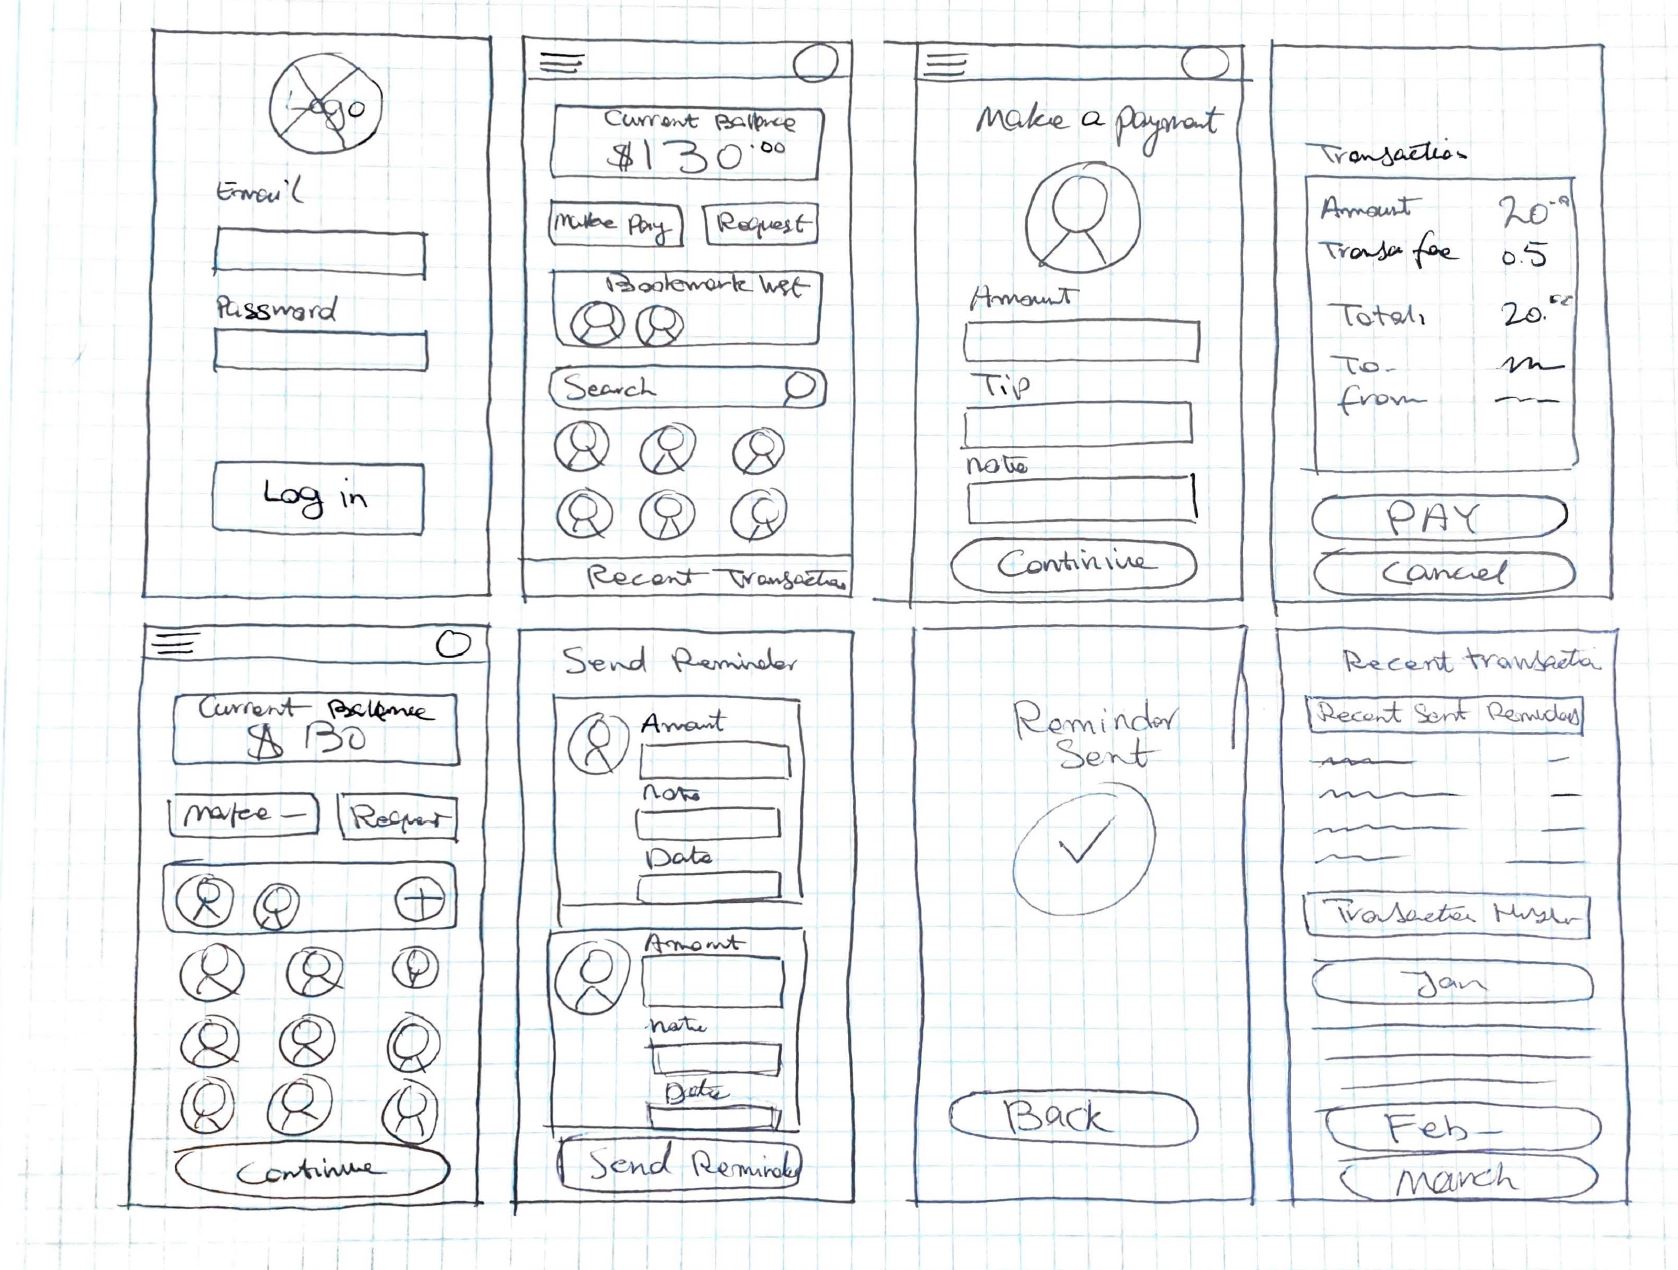 Logo
Email
Password
Log in
Current Balance
$130.00
Make Pay Request
Bookmark list
Search
Recent Transaction
Make a payment
Amount
Tip
note
Continiue
Transaction
Amount 20
Transa fee 0.5
Total,
20.
To-
from
PAY
Cancel
Current Balance
$130
Make — Request
Continue
Send Reminder
Amount
note
Date
Amount
note
Date
Send Reminder
Reminder
Sent
Back
Recent transactio
Recent Sent Reminders
Transaction
Jan
Feb-
March